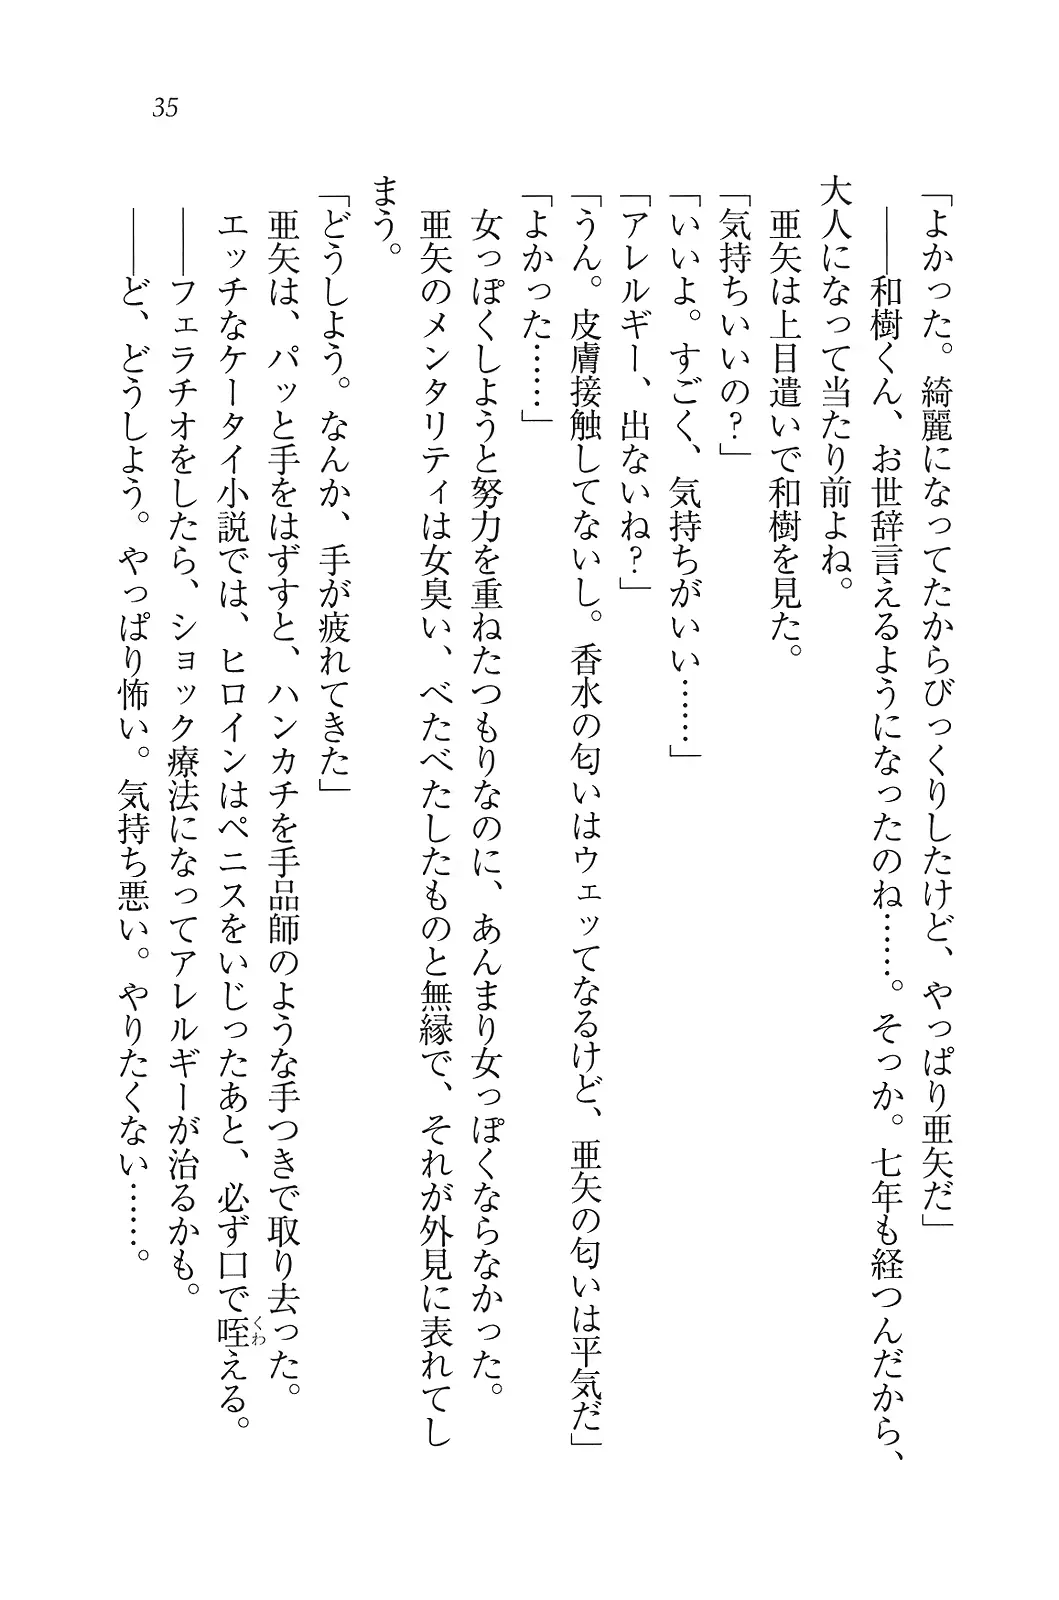 35
「よかった。綺麗になってたからびっくりしたけど、やっぱり亜矢だ」
――和樹くん、お世辞言えるようになったのね……。そっか。七年も経つんだから、
大人になって当たり前よね。
亜矢は上目遣いで和樹を見た。
「気持ちいいの？」
「いいよ。すごく、気持ちがいい……」
「アレルギー、出ないね？」
「うん。皮膚接触してないし。香水の匂いはウェッてなるけど、亜矢の匂いは平気だ」
「よかった……」
女っぽくしようと努力を重ねたつもりなのに、あんまり女っぽくならなかった。
亜矢のメンタリティは女臭い、べたべたしたものと無縁で、それが外見に表れてし
まう。
「どうしよう。なんか、手が疲れてきた」
亜矢は、パッと手をはずすと、ハンカチを手品師のような手つきで取り去った。
エッチなケータイ小説では、ヒロインはペニスをいじったあと、必ず口で咥える。
くわ
――フェラチオをしたら、ショック療法になってアレルギーが治るかも。
――ど、どうしよう。やっぱり怖い。気持ち悪い。やりたくない……。